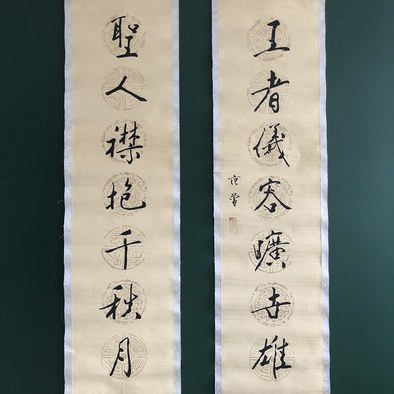 王者儀容曠古雄
聖人襟抱千秋月